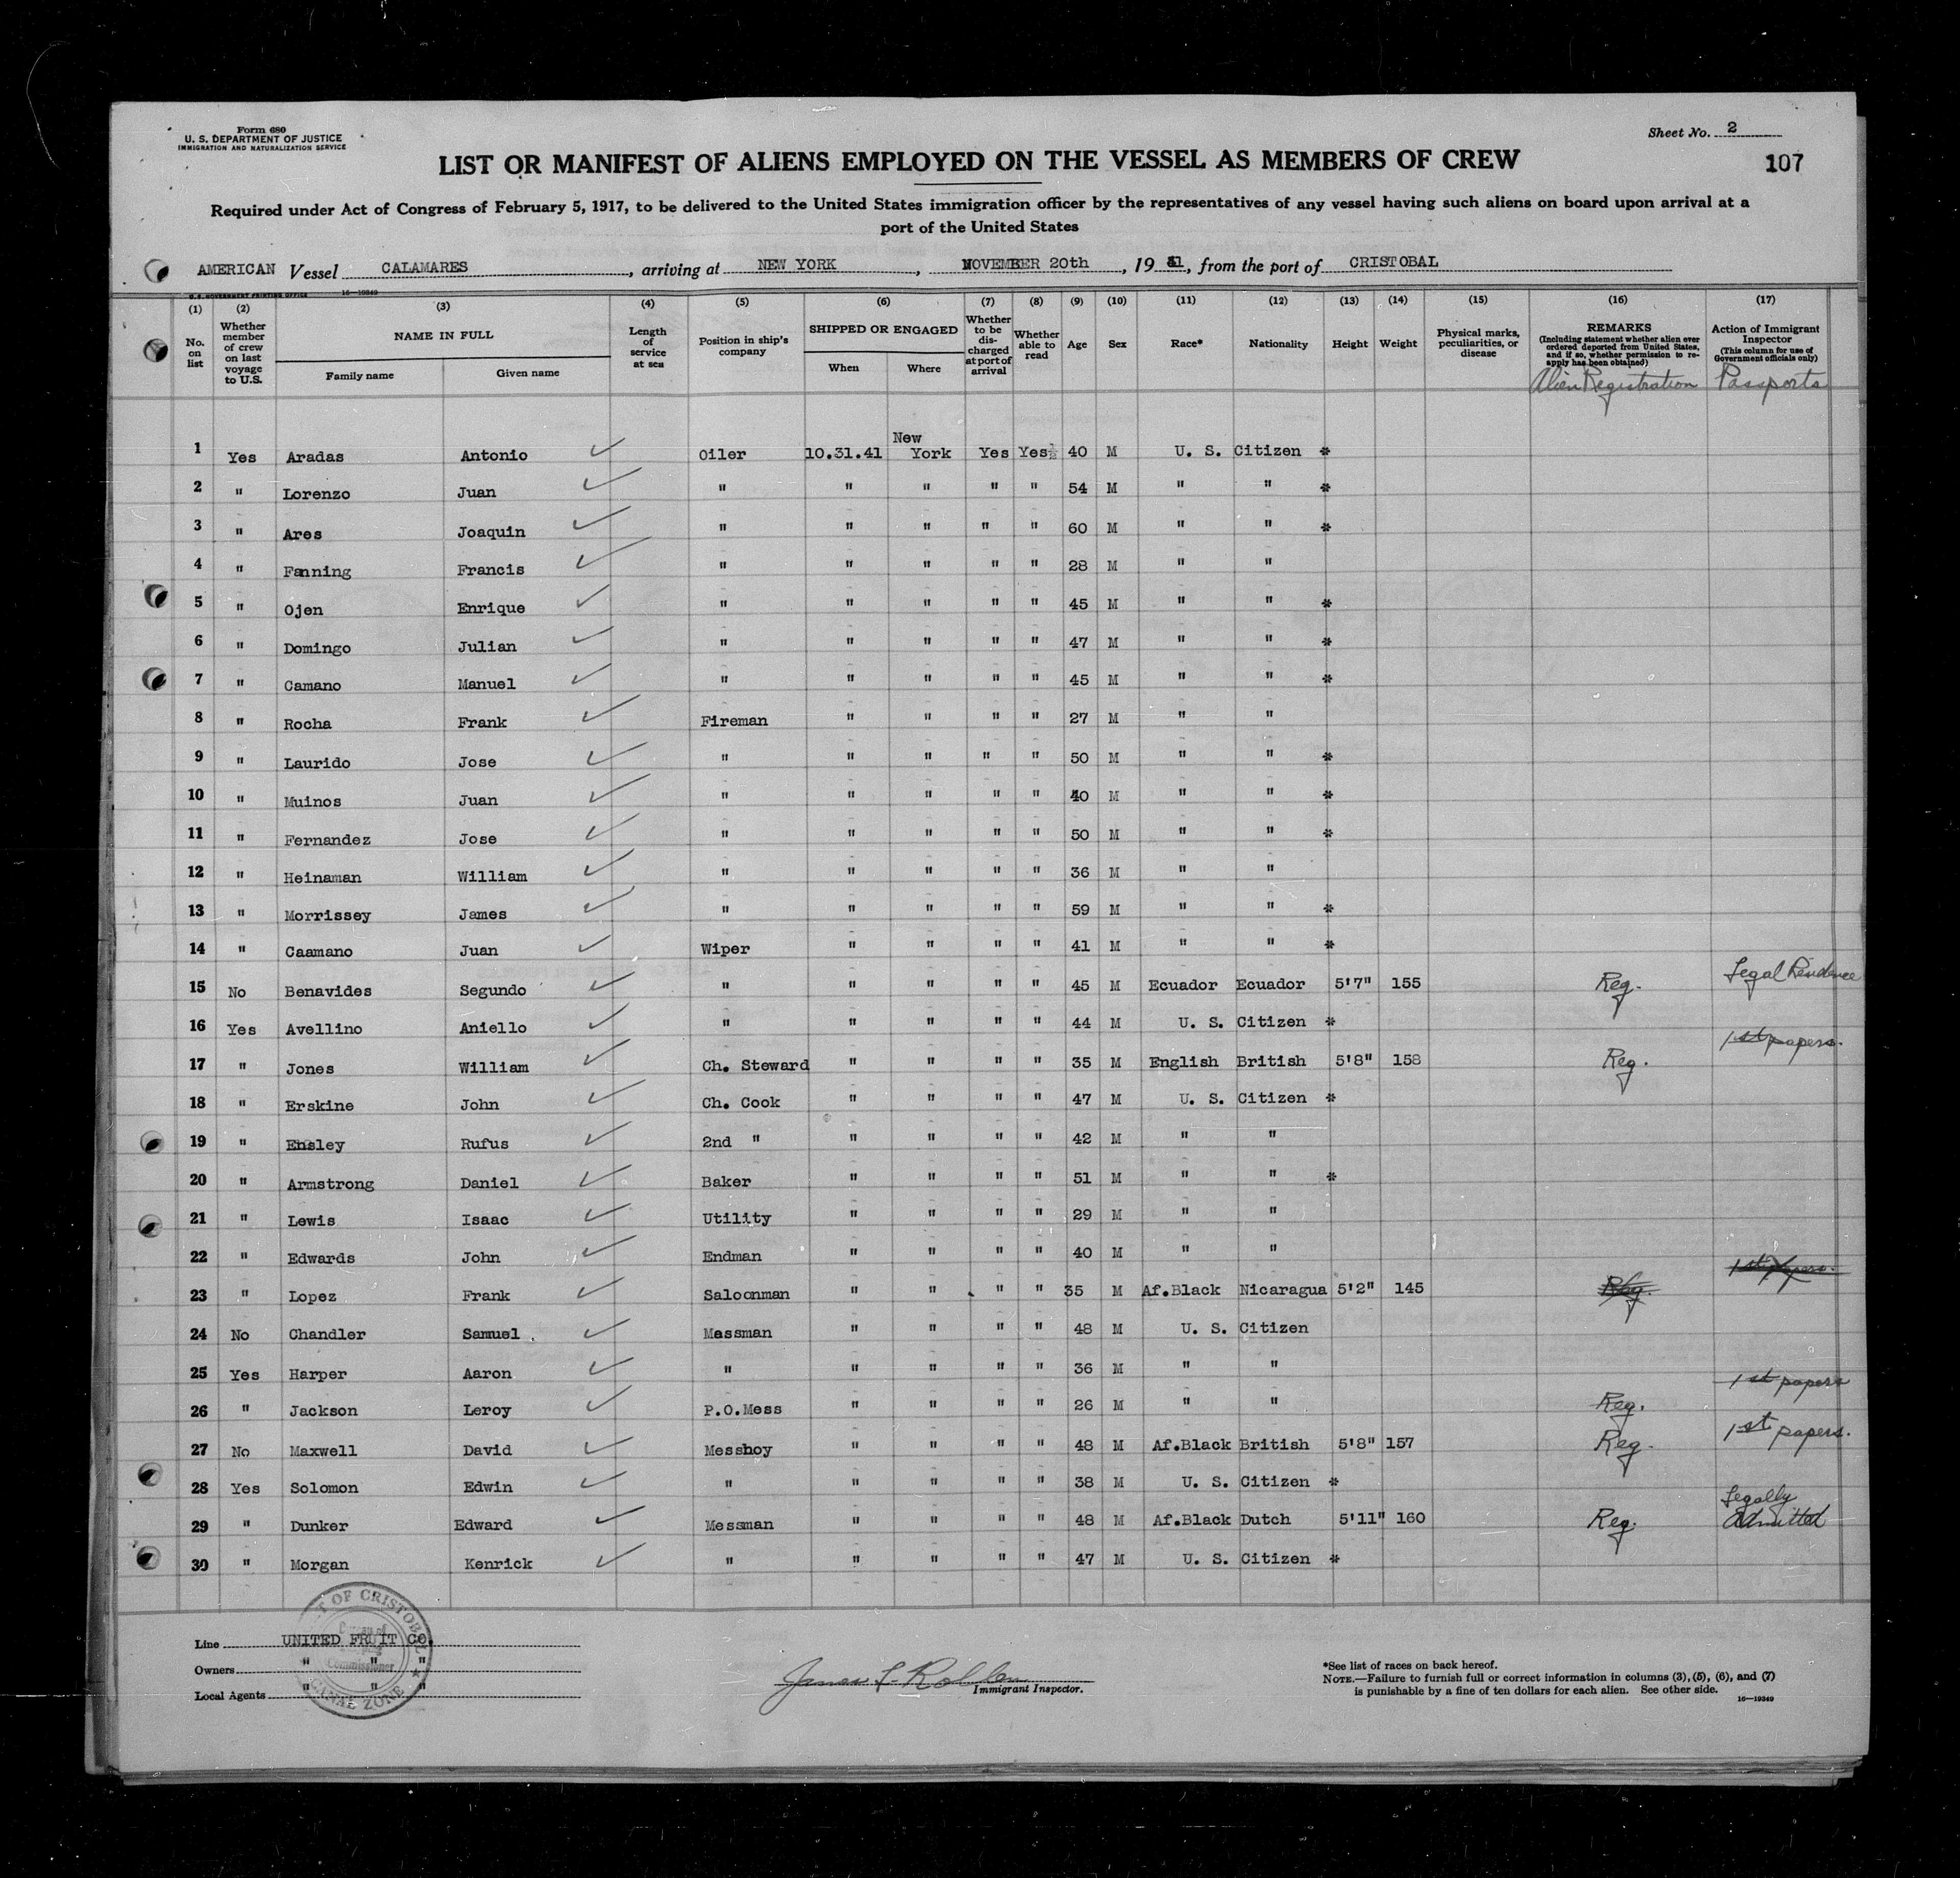 Form 680
U. S. DEPARTMENT OF JUSTICE
IMMIGRATION AND NATURALIZATION SERVICE
Sheet No. 2
107
LIST OR MANIFEST OF ALIENS EMPLOYED ON THE VESSEL AS MEMBERS OF CREW
Required under Act of Congress of February 5, 1917, to be delivered to the United States immigration officer by the representatives of any vessel having such aliens on board upon arrival at a
port of the United States
AMERICAN Vessel CALAMARES, arriving at NEW YORK, NOVEMBER 20th, 1941, from the port of CRISTOBAL
U.S. GOVERNMENT PRINTING OFFICE 16—19349
(1) No. on list
(2) Whether member of crew on last voyage to U.S.
(3) NAME IN FULL
Family name Given name
(4) Length of service at sea
(5) Position in ship's company
(6) SHIPPED OR ENGAGED
When Where
(7) Whether to be discharged at port of arrival
(8) Whether able to read
(9) Age
(10) Sex
(11) Race*
(12) Nationality
(13) Height
(14) Weight
(15) Physical marks, peculiarities, or disease
(16) REMARKS (Including statement whether alien ever ordered deported from United States, and if so, whether permission to reapply has been obtained)
Alien Registration
(17) Action of Immigrant Inspector (This column for use of Government officials only)
Passports
1 Yes Aradas Antonio ✓ Oiler 10.31.41 New York Yes Yes 40 M U. S. Citizen *
2 " Lorenzo Juan ✓ " " " " " 54 M " " *
3 " Ares Joaquin ✓ " " " " " 60 M " " *
4 " Fanning Francis ✓ " " " " " 28 M " "
5 " Ojen Enrique ✓ " " " " " 45 M " " *
6 " Domingo Julian ✓ " " " " " 47 M " " *
7 " Camano Manuel ✓ " " " " " 45 M " " *
8 " Rocha Frank ✓ Fireman " " " " 27 M " "
9 " Laurido Jose ✓ " " " " " 50 M " " *
10 " Muinos Juan ✓ " " " " " 40 M " " *
11 " Fernandez Jose ✓ " " " " " 50 M " " *
12 " Heinaman William ✓ " " " " " 36 M " "
13 " Morrissey James ✓ " " " " " 59 M " " *
14 " Caamano Juan ✓ Wiper " " " " 41 M " " *
15 No Benavides Segundo ✓ " " " " " 45 M Ecuador Ecuador 5'7" 155 Reg. Legal Residence
16 Yes Avellino Aniello ✓ " " " " " 44 M U. S. Citizen *
17 " Jones William ✓ Ch. Steward " " " " 35 M English British 5'8" 158 Reg. 1st papers.
18 " Erskine John ✓ Ch. Cook " " " " 47 M U. S. Citizen *
19 " Ensley Rufus ✓ 2nd " " " " " 42 M " "
20 " Armstrong Daniel ✓ Baker " " " " 51 M " " *
21 " Lewis Isaac ✓ Utility " " " " 29 M " "
22 " Edwards John ✓ Endman " " " " 40 M " "
23 " Lopez Frank ✓ Saloonman " " " " 35 M Af.Black Nicaragua 5'2" 145 Reg. 1st papers.
24 No Chandler Samuel ✓ Messman " " " " 48 M U. S. Citizen
25 Yes Harper Aaron ✓ " " " " " 36 M " "
26 " Jackson Leroy ✓ P.O.Mess " " " " 26 M " " Reg. 1st papers
27 No Maxwell David ✓ Messboy " " " " 48 M Af.Black British 5'8" 157 Reg. 1st papers.
28 Yes Solomon Edwin ✓ " " " " " 38 M U. S. Citizen *
29 " Dunker Edward ✓ Messman " " " " 48 M Af.Black Dutch 5'11" 160 Reg. Legally Admitted
30 " Morgan Kenrick ✓ " " " " " 47 M U. S. Citizen *
Line UNITED FRUIT CO.
Owners " " "
Local Agents " " "
OF CRISTOBAL
Commissioner
CANAL ZONE
Immigrant Inspector.
*See list of races on back hereof.
NOTE.—Failure to furnish full or correct information in columns (3), (5), (6), and (7)
is punishable by a fine of ten dollars for each alien. See other side.
16—19349